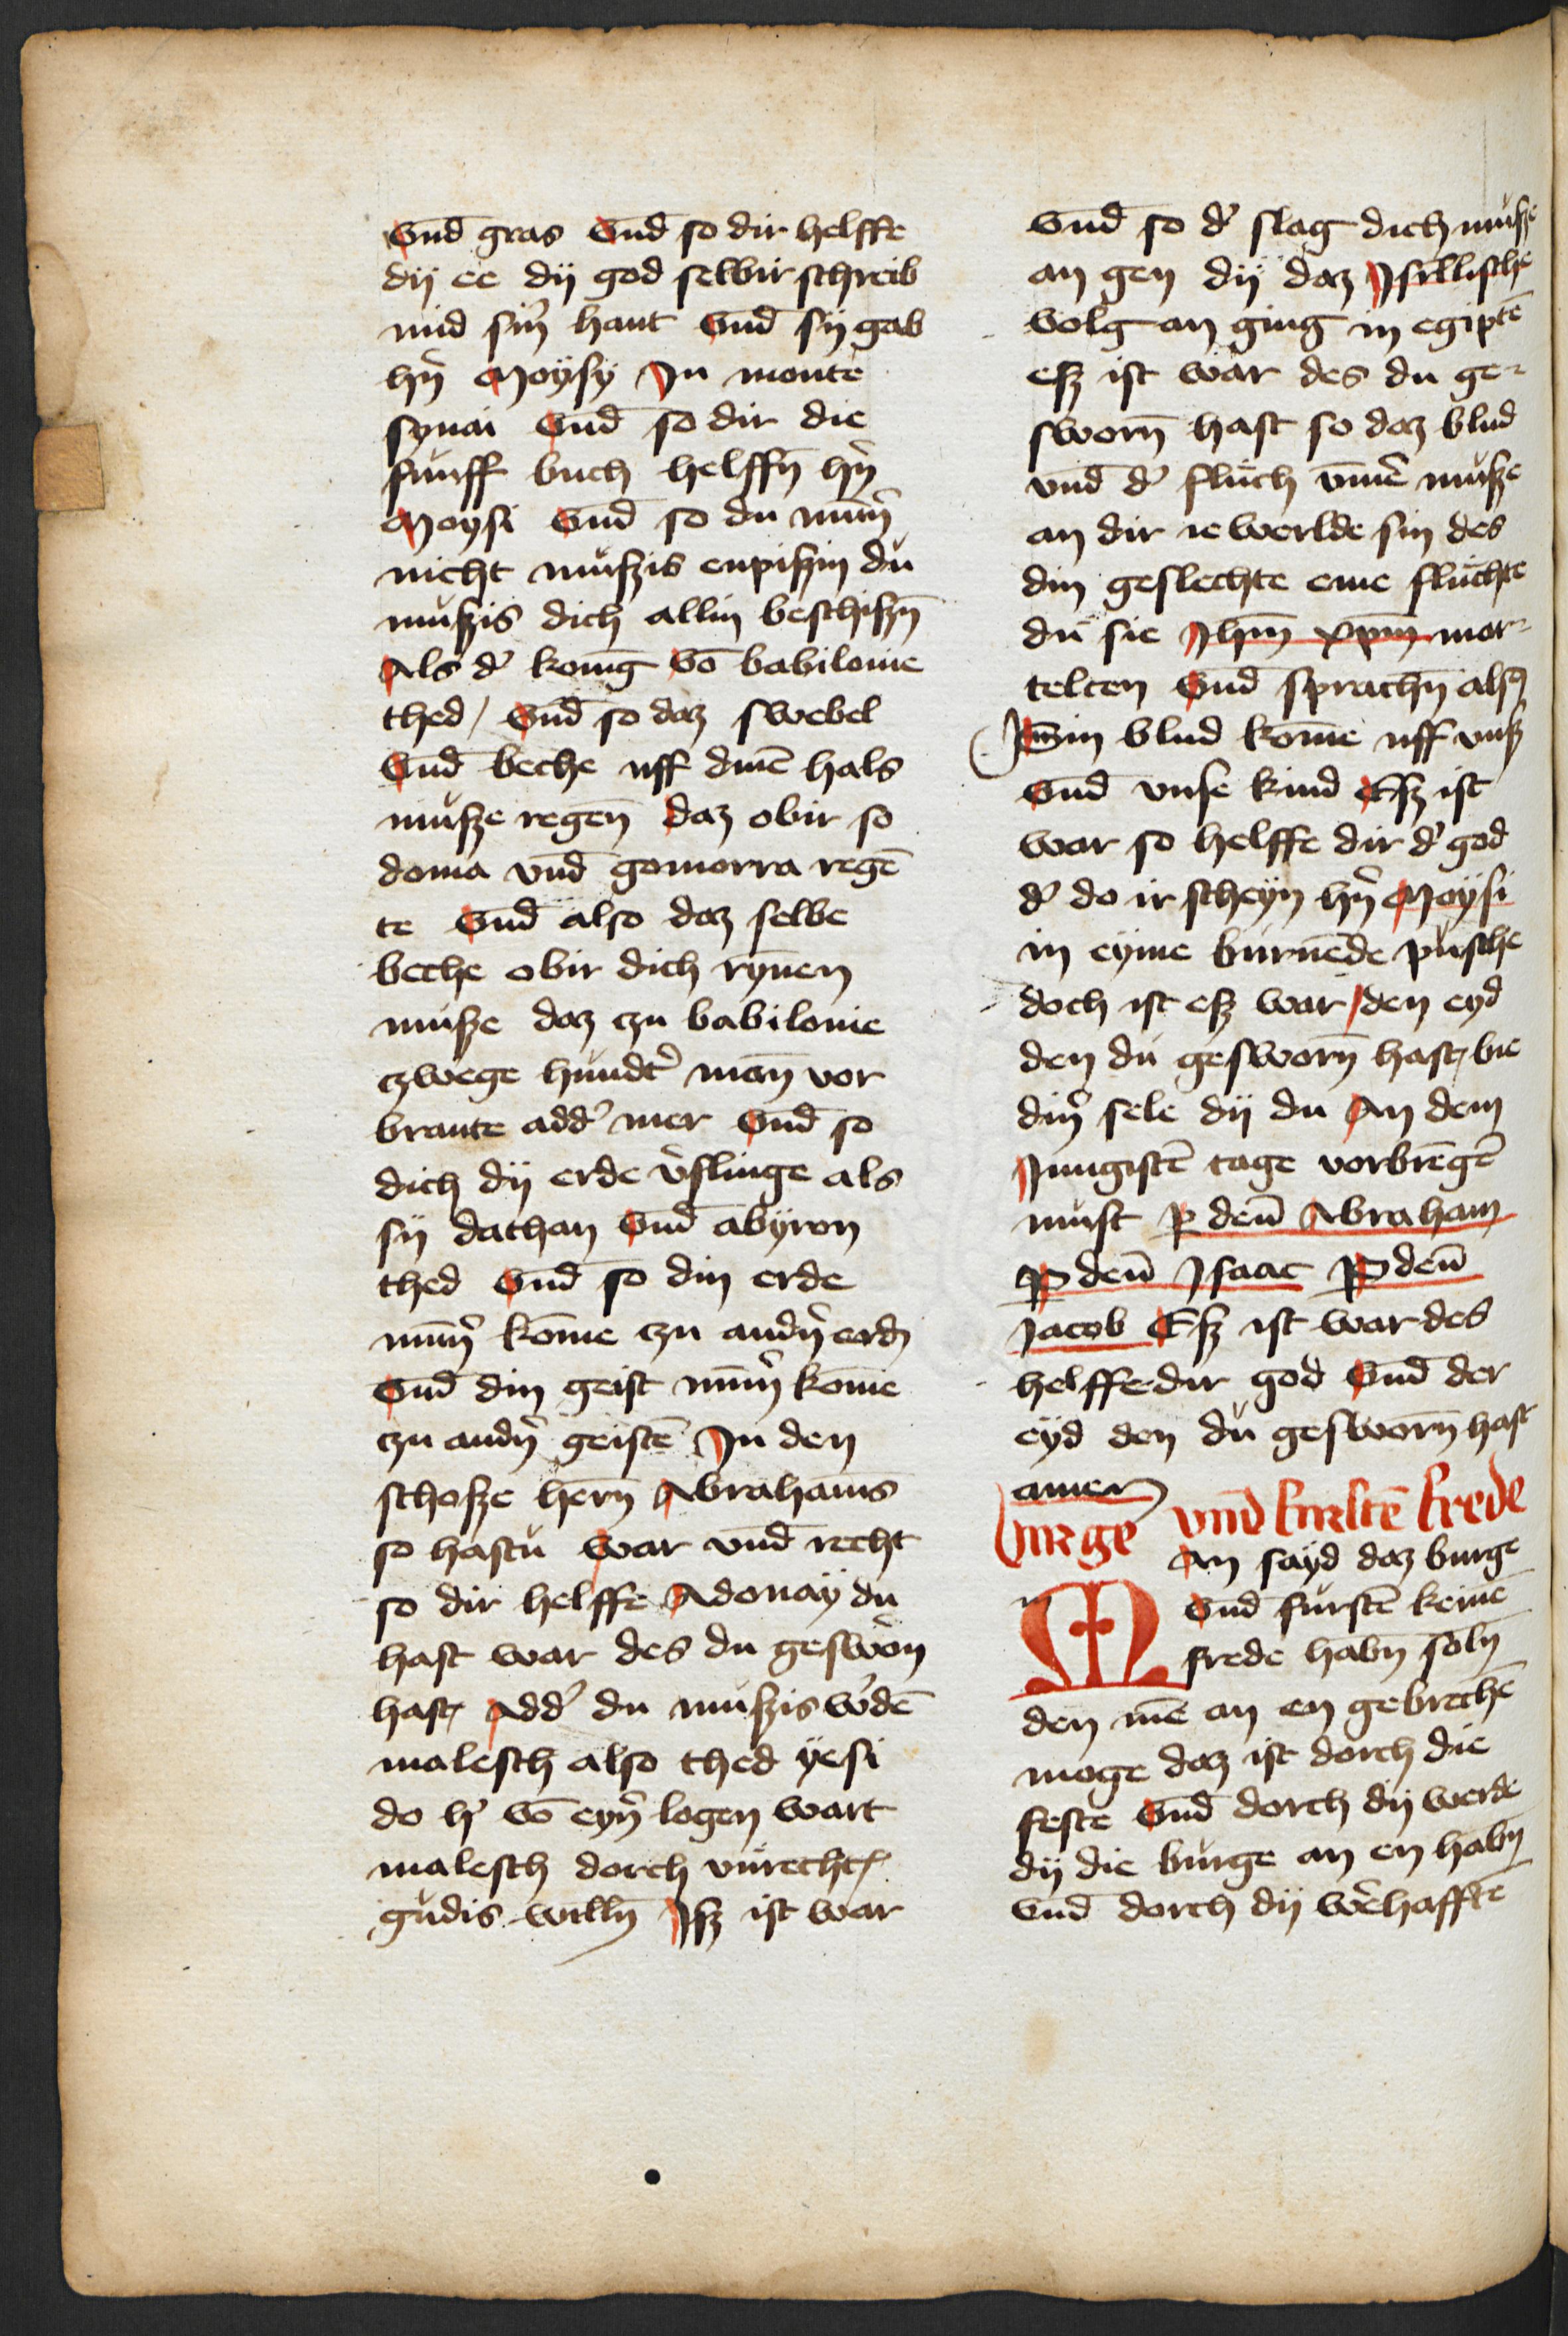 Vnd̄ gras Vnd̄ so dir helffe
dÿ ee dÿ god selbir schreib
mid sin̉ hant Vnd̄ sÿ gab
hn̉ Moÿsÿ In monte
synai Vnd̄ so dir die
funff buch helffn̄ hn̉
Moysi Vnd̄ so du nȳm̉
nicht mußis enpißin du
mußis dich allin beschißn̄
Als d̉ konig vō babilonie
thed / Vnd̄ so daz swebel
Vnd̄ beche uff dinē hals
muße regen̄ daz obir so
doma vnd̄ gomorra regē
te Vnd̄ also daz selbe
beche obir dich rȳnen
muße daz czu babilonie
czwege hundt̉ man̄ vor
brante add̉ mer Vnd̄ so
dich dÿ erde v̉slinge als
sÿ dathan Vnd̄ abÿron
thed Vnd̄ so din erde
nȳm̉ kom̄e czu andn̉ erdn
Vnd̄ din geist nȳm̉ kom̄e
czu andn̉ geistē In den
schoße hern̄ Abrahams
so hastu war vnd̄ recht
so dir helffe Adonaÿ du
hast war des du geswỏn
hast Add̉ du mußis w̉dē
malesch also thed ÿesi
do h̉ vō eyn̉ logen wart
malesch dorch vnrecht
gudis willn̄ Iß ist war
Vnd̄ so d̉ slag dich muße
an gen dÿ daz Isrllische
volg an ging in egiptē
eß ist war des du ge-
sworn̄ hast so daz blud
vnd̄ d̉ fluch vm̄ē muße
an dir ie werlde sin des
din geslechte eme fluchte
du sie Jhm̄ xpm̄ mar-
telten Vnd̄ sprachn̄ alsus
Sin blud kom̄e uff vnß
Vnd̄ vnse kind Eß ist
war so helffe dir d̉ god
d̉ do irscheyn hn̉ Moÿsi
in eÿme burnēde pusche
doch ist eß war / den eyd
den du gesworn̄ hast bie
din̉ sele dÿ du An dem
Jungistē tage vorbrēgē
must ꝑ deū Abraham
ꝑ deū Isaac ꝑ deū
Jacob Eß ist war des
helffe dir god Vnd̄ der
eÿd den du gesworn̄ hast
amen
burge vnd̄ furstē frede
MAn sayd daz burge
Vnd̄ furstē keinē
frede habn̄ soln̄
den mē an en gebrechē
moge daz ist dorch die
feste Vnd̄ dorch dÿ werde
dÿ die burge an en habn̄
Vnd̄ dorch dÿ w̉haffte